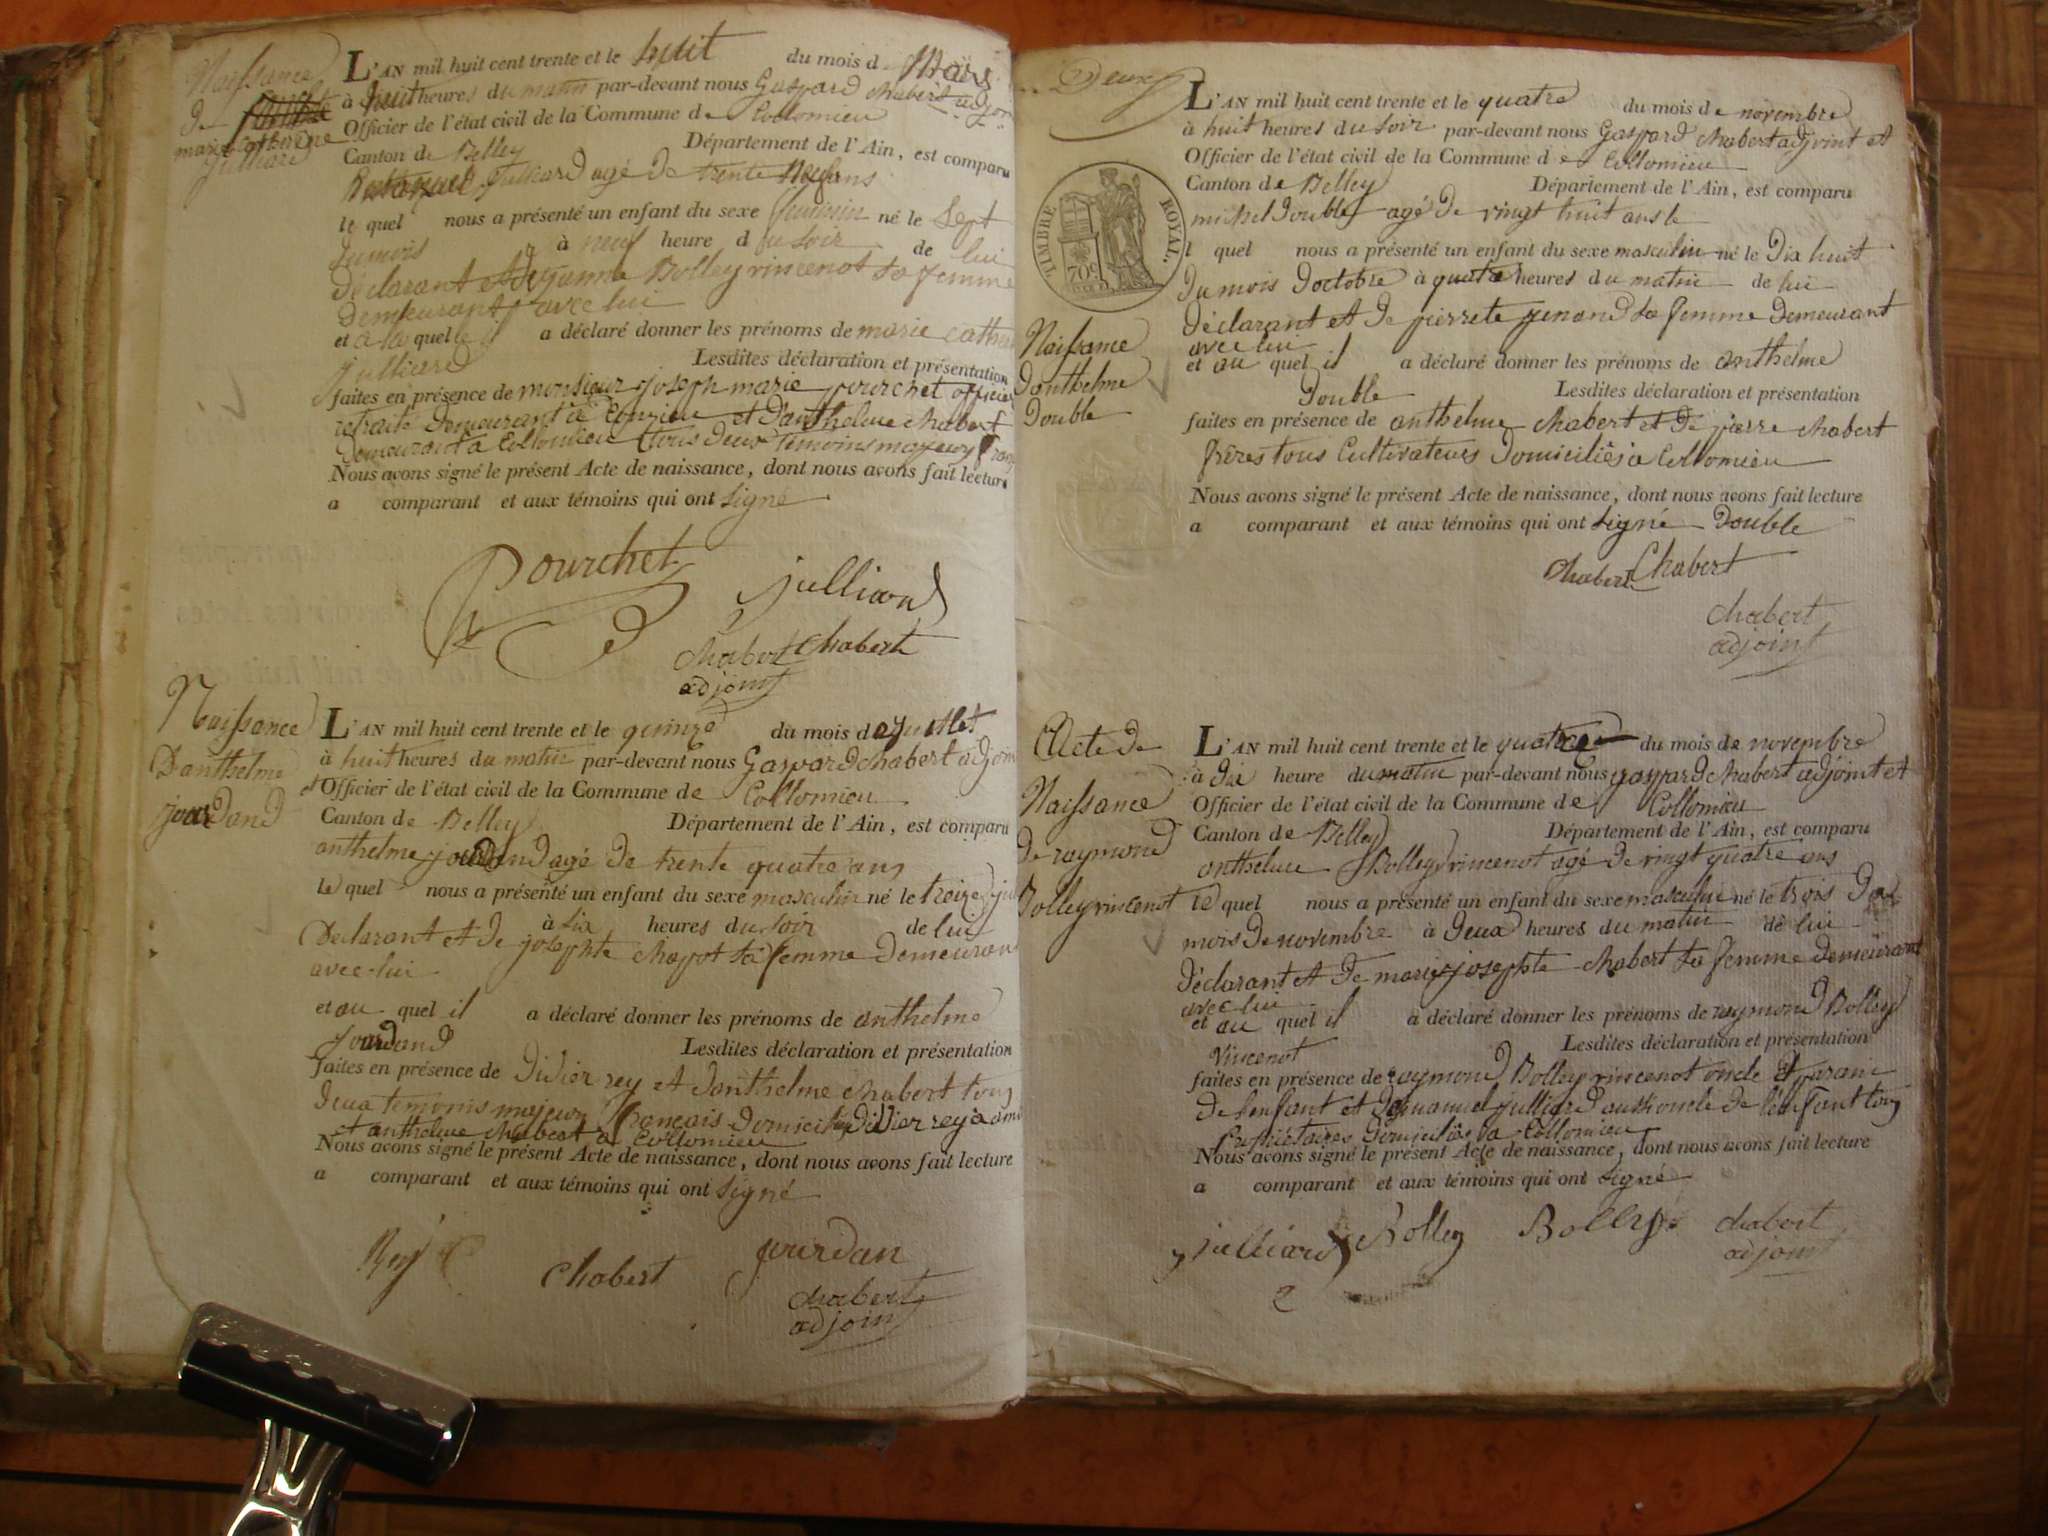 Naissance
de
marie catherine
julliard
L'AN mil huit cent trente et le huit du mois de Mars
à huit heures du matin par-devant nous Gaspard chabert adjoin
Officier de l'état civil de la Commune de Collomieu
Canton de Belley Département de l'Ain, est comparu
julliard agé de trente ans
le quel nous a présenté un enfant du sexe feminin né le Sept
du mois à neuf heure du soir de lui
déclarant et de jeanne Bolley vincenot sa femme
demeurant avec lui
et a la quelle il a déclaré donner les prénoms de marie cathe
julliard Lesdites déclaration et présentation
faites en présence de monsieur joseph marie pourchet officier
retraité demeurant à et d'anthelme chabert
demeurant a Collomieu tous deux témoins majeurs
Nous avons signé le présent Acte de naissance, dont nous avons fait lecture
a comparant et aux témoins qui ont signé
Pourchet
julliard
chabert chabert
adjoint
Naissance
D'anthelme
jourdand
L'AN mil huit cent trente et le quinze du mois de juillet
à huit heures du matin par-devant nous Gaspard chabert adjoin
et Officier de l'état civil de la Commune de Collomieu
Canton de Belley Département de l'Ain, est comparu
anthelme jourdand agé de trente quatre ans
le quel nous a présenté un enfant du sexe masculin né le treize
à six heures du soir de lui
Déclarant et de josephte chapot sa femme demeuran
avec lui
et au quel il a déclaré donner les prénoms de anthelme
jourdand Lesdites déclaration et présentation
faites en présence de Didier rey et d'anthelme chabert tous
deux temonis majeurs français domiciliés didier rey à
et anthelme chabert à Collomieu
Nous avons signé le présent Acte de naissance, dont nous avons fait lecture
a comparant et aux témoins qui ont signé
Rey
chabert
jourdan
chabert
adjoint
Deux
TIMBRE ROYAL.
70c
Naissance
d'anthelme
Double
L'AN mil huit cent trente et le quatre du mois de novembre
à huit heures du soir par-devant nous Gaspard chabert adjoint et
Officier de l'état civil de la Commune de Collomieu
Canton de Belley Département de l'Ain, est comparu
michel Double agé de vingt huit ans le
l quel nous a présenté un enfant du sexe masculin né le dix huit
du mois d'octobre à quatre heures du matin de lui
déclarant et de pierrete genand sa femme demeurant
avec lui
et au quel il a déclaré donner les prénoms de anthelme
Double Lesdites déclaration et présentation
faites en présence de anthelme chabert et de pierre chabert
frères tous cultivateurs domiciliés à Collomieu
Nous avons signé le présent Acte de naissance, dont nous avons fait lecture
a comparant et aux témoins qui ont signé Double
chabert Chabert
chabert
adjoint
Acte de
Naissance
de raymond
Bolley vincenot
L'AN mil huit cent trente et le quatre du mois de novembre
à dix heure du matin par-devant nous gaspard chabert adjoint et
Officier de l'état civil de la Commune de Collomieu
Canton de Belley Département de l'Ain, est comparu
anthelme Bolley vincenot agé de vingt quatre ans
le quel nous a présenté un enfant du sexe masculin né le trois du
mois de novembre à deux heures du matin de lui
déclarant et de marie josephte chabert sa femme demeurant
avec lui
et au quel il a déclaré donner les prénoms de raymond Bolley
Vincenot Lesdites déclaration et présentation
faites en présence de raymond Bolley vincenot oncle et parain
de l'enfant et d'emanuel julliard aussi oncle de l'enfant tous
propriétaires domiciliés à Collomieu
Nous avons signé le présent Acte de naissance, dont nous avons fait lecture
a comparant et aux témoins qui ont signé
julliard Bolley Bolley chabert
adjoint
2